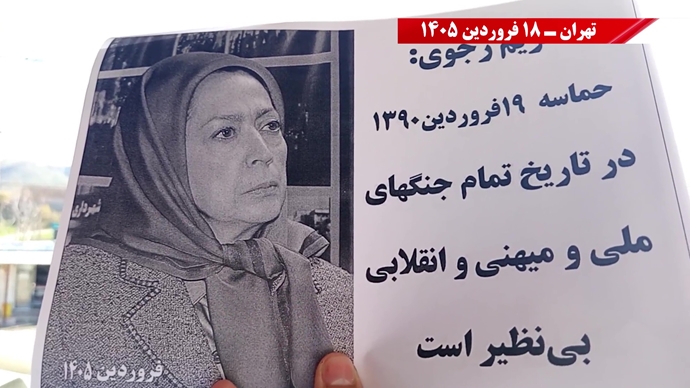 تهران ــ ۱۸ فروردین ۱۴۰۵
ریم رجوی:
حماسه ۱۹فروردین۱۳۹۰
در تاریخ تمام جنگهای
ملی و میهنی و انقلابی
بی‌نظیر است
شهرداری
فروردین ۱۴۰۵